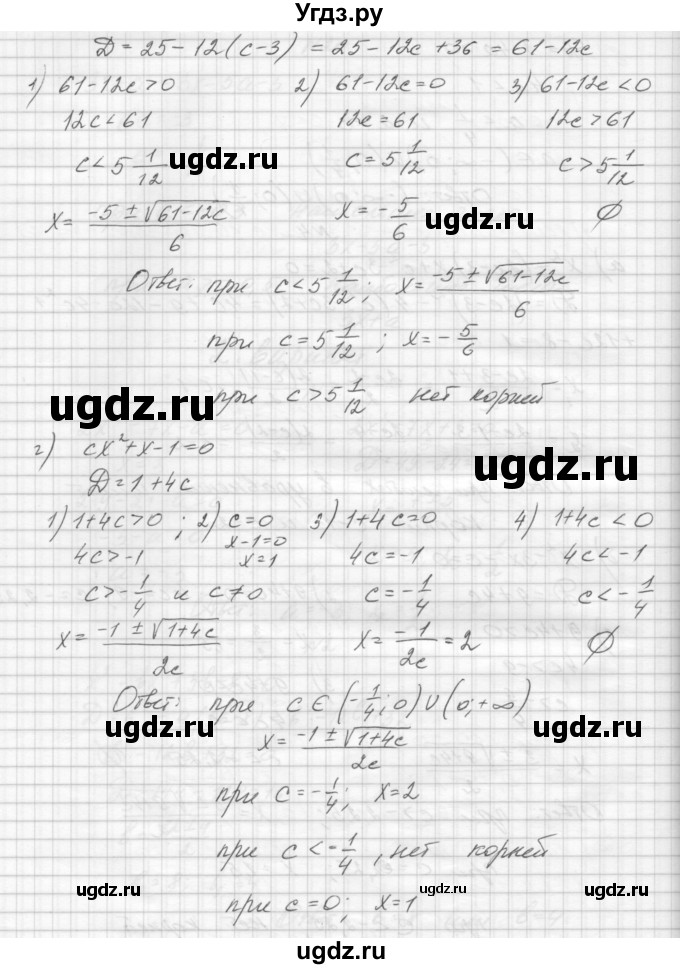 Угдз.ру
D = 25 - 12(c-3) = 25 - 12c + 36 = 61 - 12c
1) 61-12c>0 2) 61-12c=0 3) 61-12c<0
12c<61 12c=61 12c>61
c<5 1/12 c=5 1/12 c>5 1/12
ugdz.ru
x= (-5±√(61-12c))/6 x=-5/6 ∅
ugdz.ru
Ответ: при c<5 1/12; x= (-5±√(61-12c))/6
при c=5 1/12; x=-5/6
при c>5 1/12 нет корней
ugdz.ru
г) cx²+x-1=0
ugdz.ru
D=1+4c
1) 1+4c>0; 2) c=0 3) 1+4c=0 4) 1+4c<0
x-1=0
4c>-1 x=1 4c=-1 4c<-1
c>-1/4 и c≠0 c=-1/4 c<-1/4
x= (-1±√(1+4c))/2c x= -1/2c =2 ∅
Ответ: при c∈(-1/4;0)∪(0;+∞)
ugdz.ru ugdz.ru
x= (-1±√(1+4c))/2c
при c=-1/4; x=2
при c<-1/4, нет корней
ugdz.ru ugdz.ru ugdz.ru
при c=0; x=1
ugdz.ru